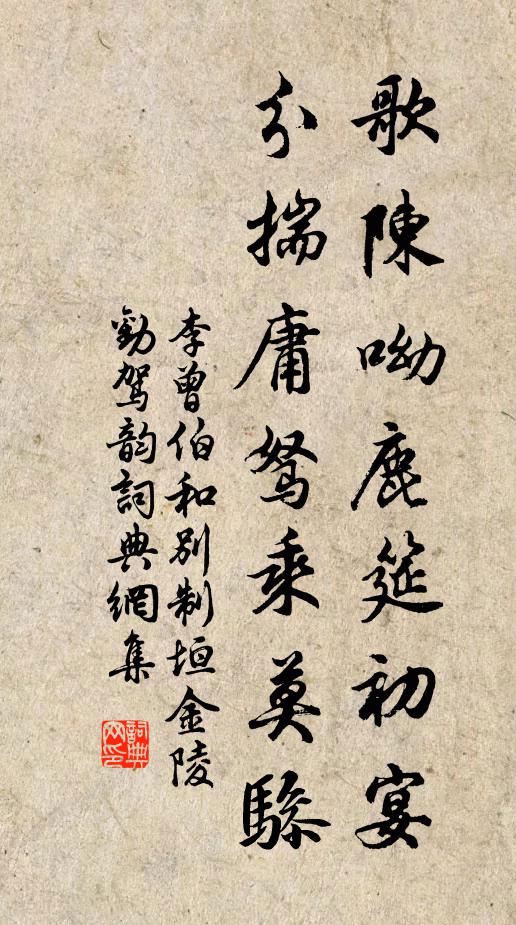 歌陳呦鹿筵初宴
分揣庸駑乘莫驂
李曾伯和別制垣金陵
勸駕韵詞典網集
詞典網印